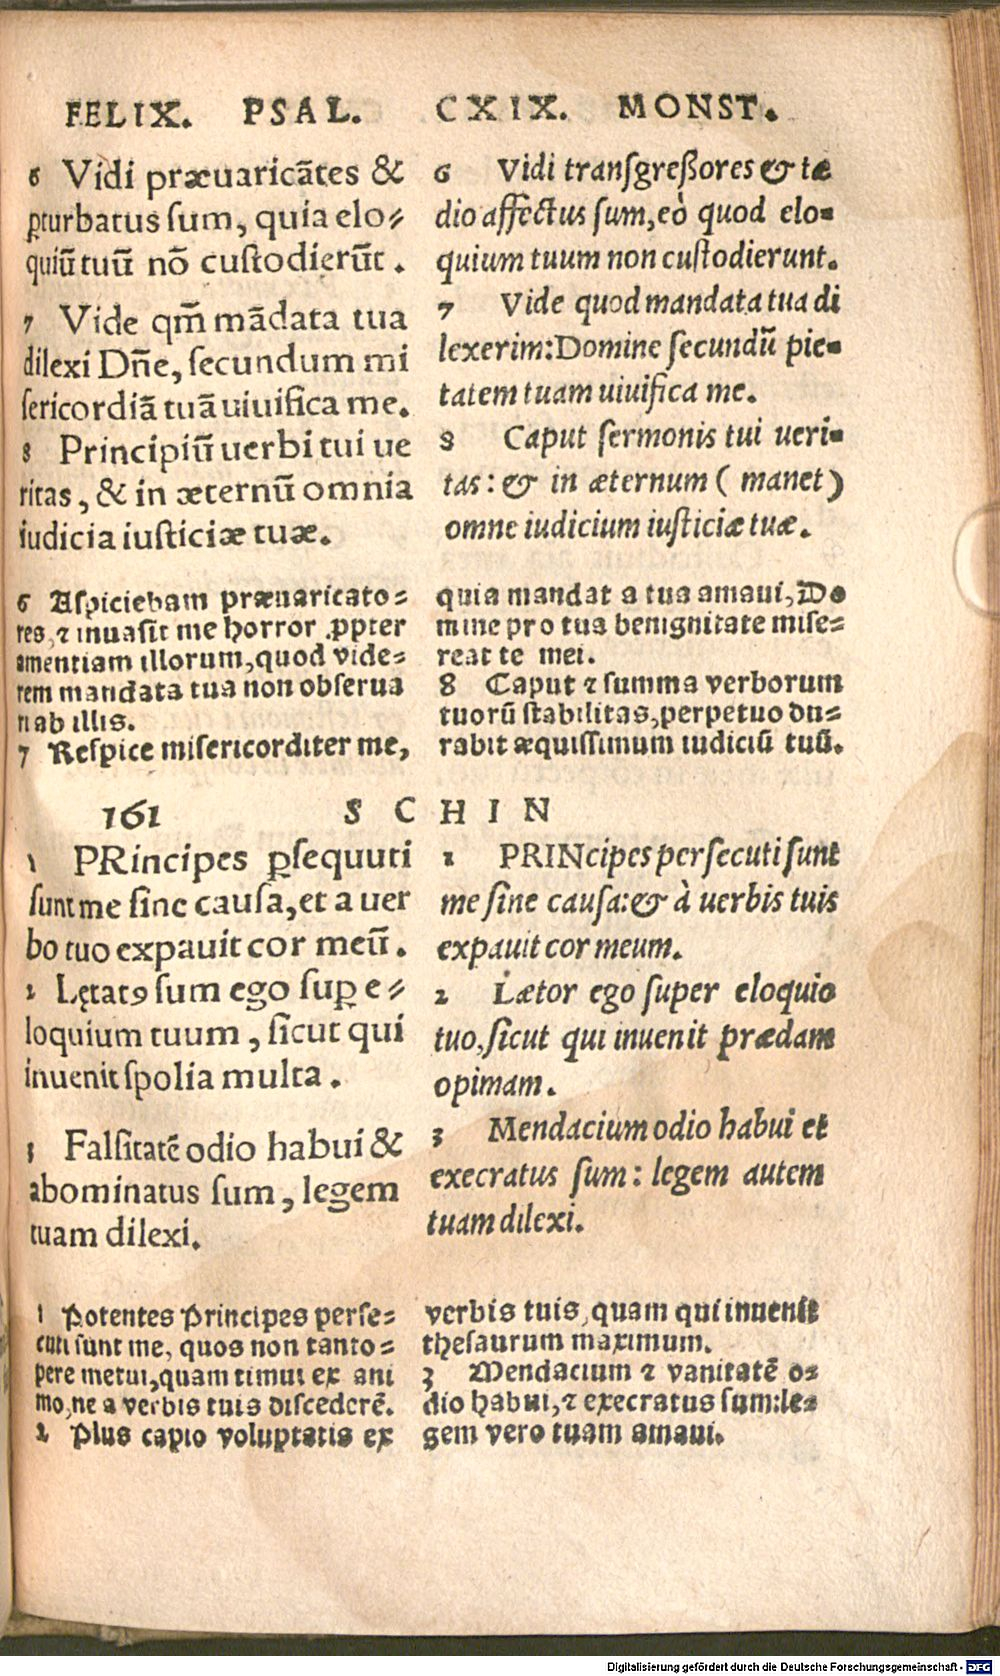 FELIX. PSAL. CXIX. MONST.
6 Vidi præuaricātes &
ꝑturbatus sum, quia elo⸗
quiū tuū nō custodierūt.
7 Vide qm̄ mādata tua
dilexi Dn̄e, secundum mi
sericordiā tuā uiuifica me.
8 Principiū uerbi tui ue
ritas, & in æternū omnia
iudicia iusticiæ tuæ.
6 Vidi transgreßores & tæ
dio affectus sum, eò quod elo⸗
quium tuum non custodierunt.
7 Vide quod mandata tua di
lexerim: Domine secundū pie⸗
tatem tuam uiuifica me.
8 Caput sermonis tui ueri⸗
tas: & in æternum ( manet)
omne iudicium iusticiæ tuæ.
6 Aspiciebam præuaricato⸗
res, ⁊ inuasit me horror ꝓpter
amentiam illorum, quod vide⸗
rem mandata tua non obserua
ri ab illis.
7 Respice misericorditer me,
quia mandat a tua amaui, Do
mine pro tua benignitate mise⸗
reat te mei.
8 Caput ⁊ summa verborum
tuorū stabilitas, perpetuo du⸗
rabit æquissimum iudiciū tuū.
161 SCHIN
1 PRincipes ꝑsequuti
sunt me sine causa, et a uer
bo tuo expauit cor meū.
2 Lętatꝯ sum ego suꝑ e⸗
loquium tuum, sicut qui
inuenit spolia multa.
3 Falsitatē odio habui &
abominatus sum, legem
tuam dilexi.
1 PRINcipes persecuti sunt
me sine causa: & à uerbis tuis
expauit cor meum.
2 Lætor ego super eloquio
tuo, sicut qui inuenit prædam
opimam.
3 Mendacium odio habui et
execratus sum: legem autem
tuam dilexi.
1 Potentes Principes perse⸗
cuti sunt me, quos non tanto⸗
pere metui, quam timui ex ani
mo, ne a verbis tuis discederē.
2 Plus capio voluptatis ex
verbis tuis, quam qui inuenit
thesaurum maximum.
3 Mendacium ⁊ vanitatē o⸗
dio habui, ⁊ execratus sum: le⸗
gem vero tuam amaui.
Digitalisierung gefördert durch die Deutsche Forschungsgemeinschaft - DFG